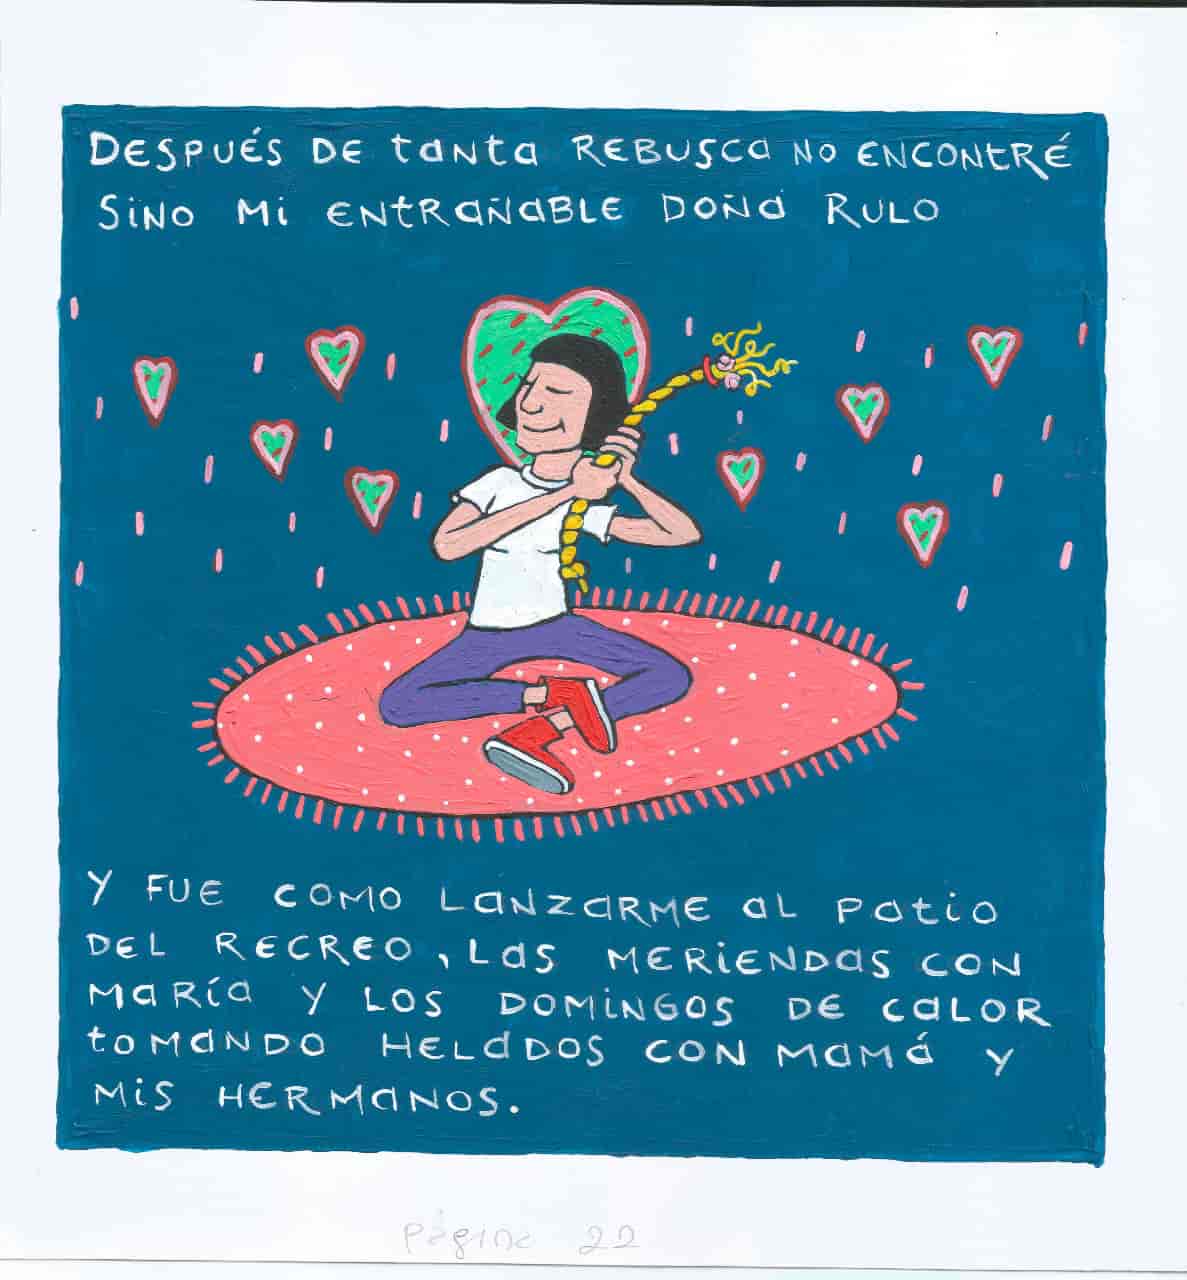 DESPUÉS DE tanta REBUSCA NO ENCONTRÉ
SINO Mi ENTRAÑABLE DOÑA RULO
Y FUE COMO LANZARME AL PATIO
DEL RECREO, LAS MERIENDAS CON
MARÍA Y LOS DOMINGOS DE CALOR
TOMANDO HELADOS CON MAMÁ Y
MIS HERMANOS.
Página 22